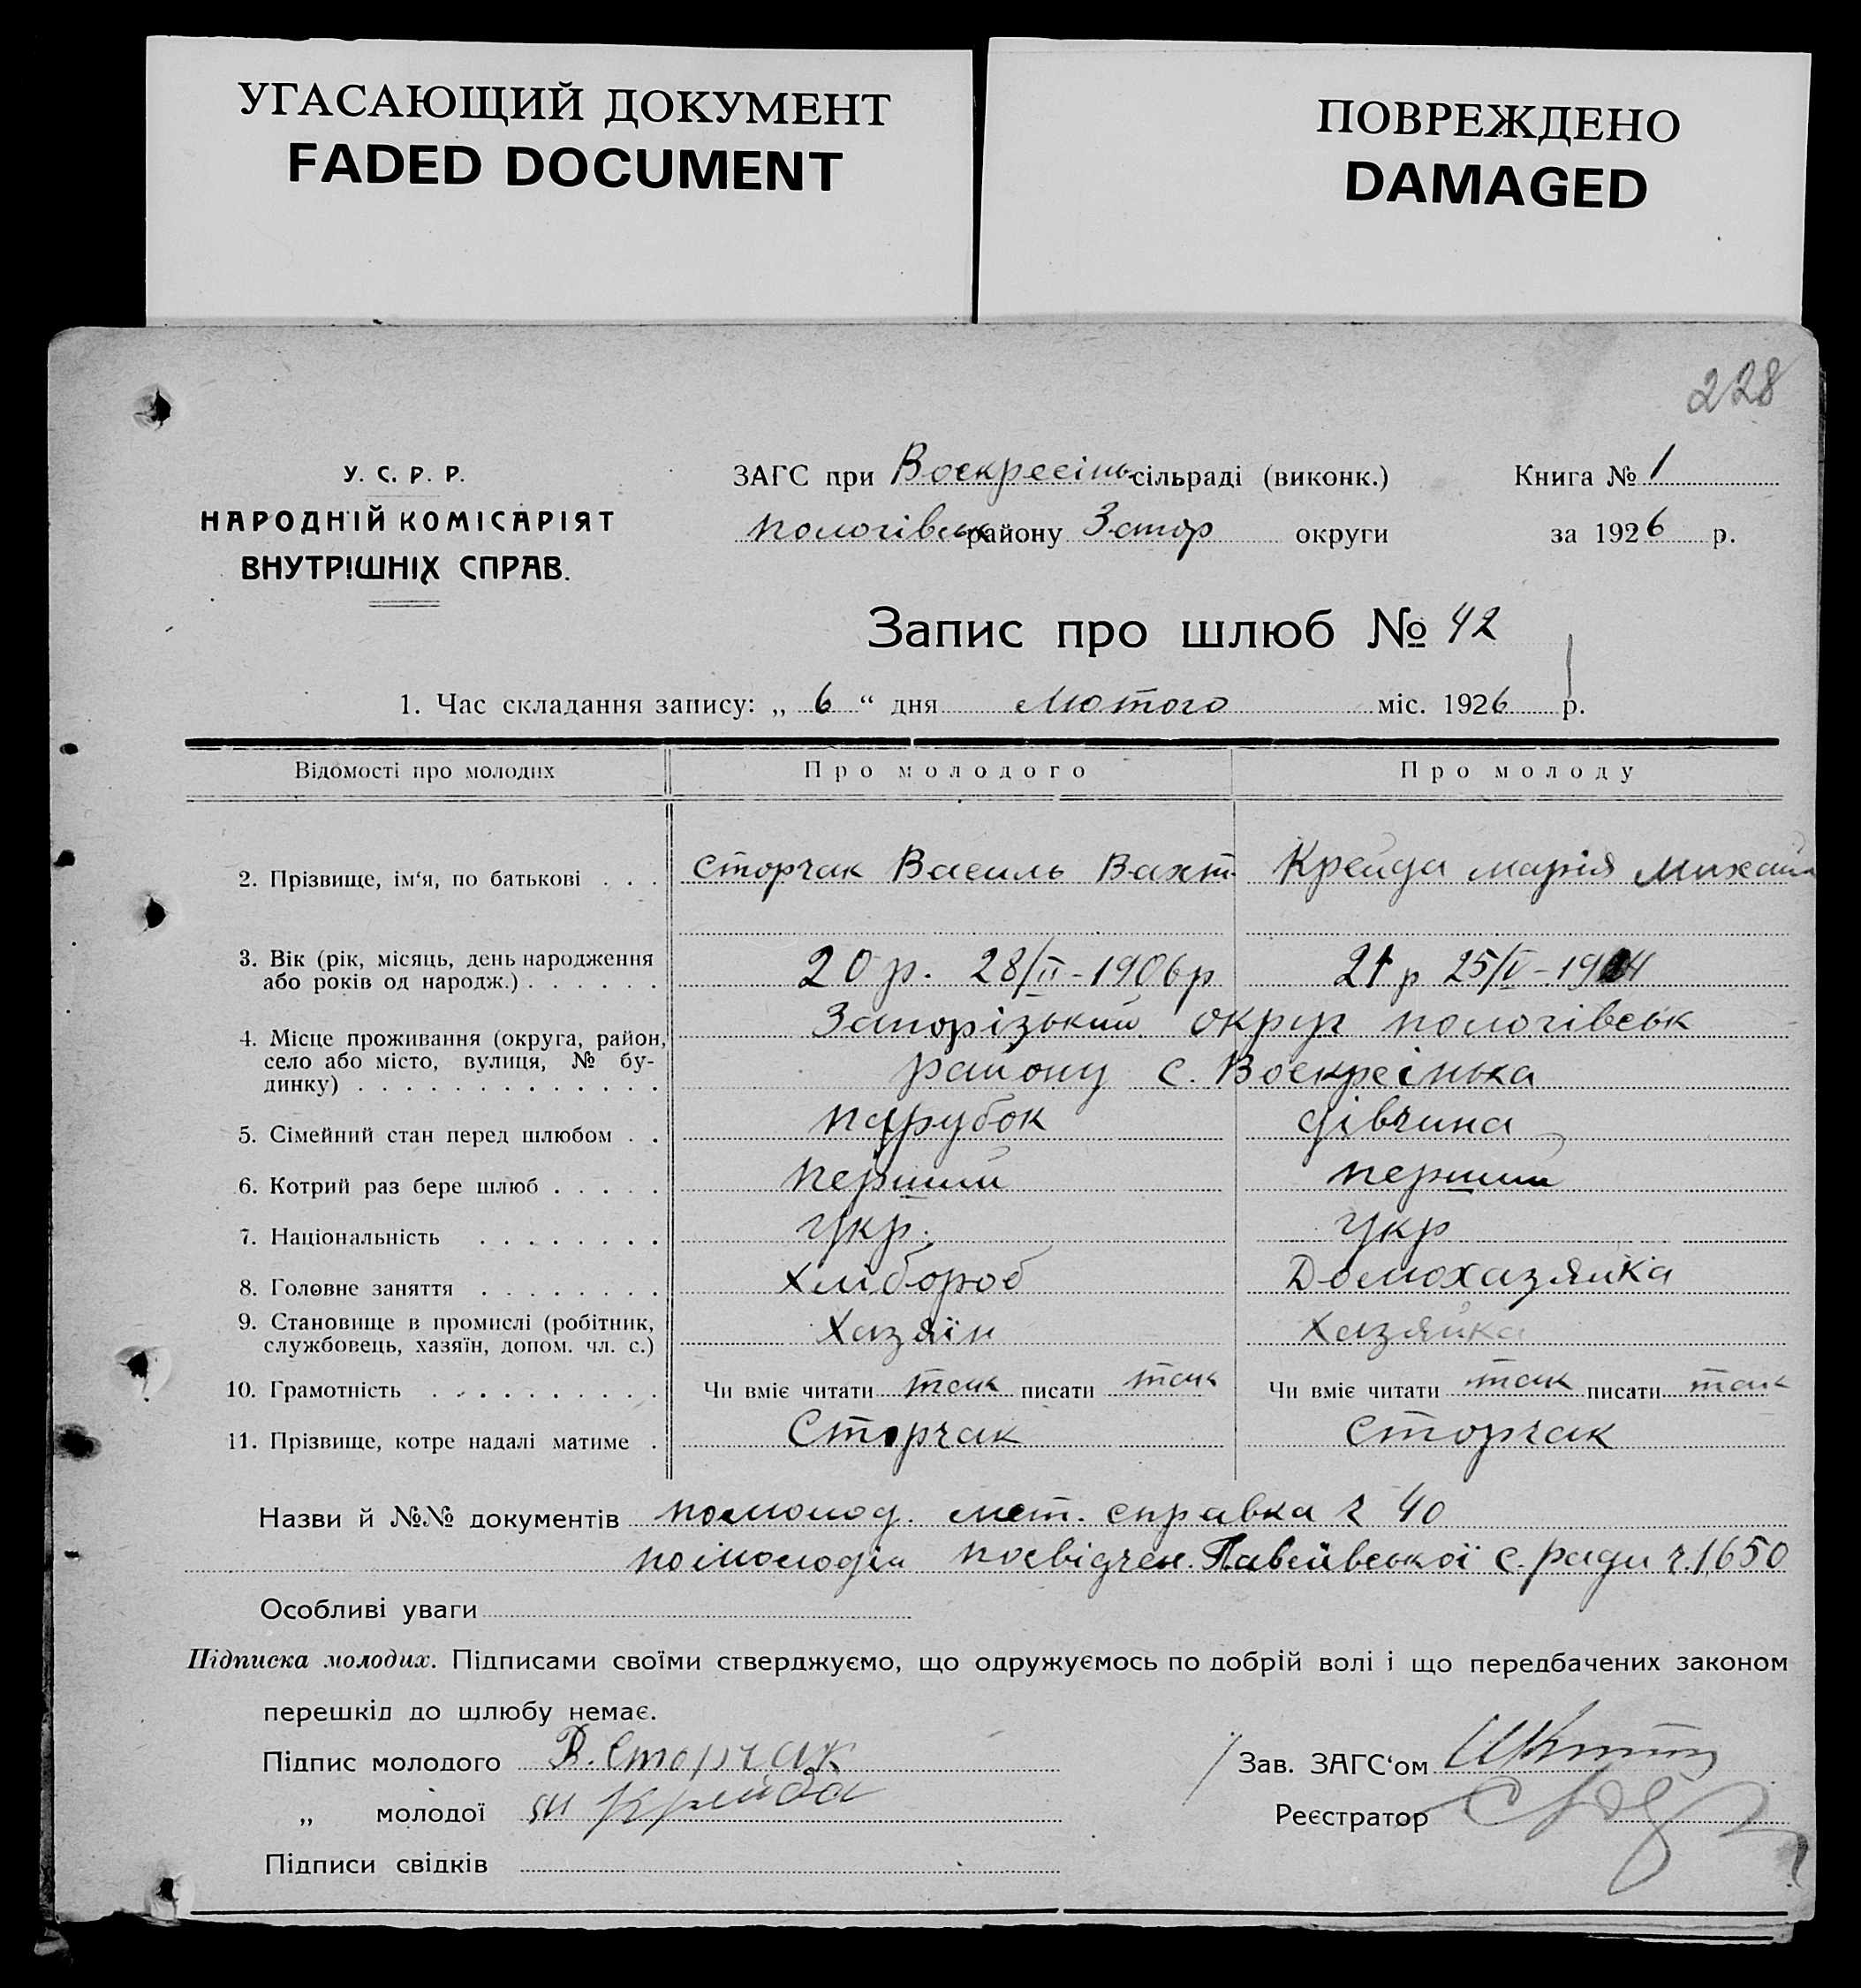 УГАСАЮЩИЙ ДОКУМЕНТ
FADED DOCUMENT
ПОВРЕЖДЕНО
DAMAGED
228
У. С. Р. Р.
НАРОДНІЙ КОМІСАРІЯТ
ВНУТРІШНІХ СПРАВ.
ЗАГС при Воскресінь сільраді (виконк.) Книга № 1
пологівськ району Запор округи за 1926 р.
Запис про шлюб № 42
1. Час складання запису: „ 6 “ дня Лютого міс. 1926 р.
Відомості про молодих Про молодого Про молоду
2. Прізвище, ім‘я, по батькові . . . Сторчак Василь Вахт. Крейда Марія Михайл
3. Вік (рік, місяць, день народження
або років од народж.) . . . . . . 20 р. 28/II-1906 р 21 р 25/IV-1904
4. Місце проживання (округа, район, Запорізький округ пологівськ
село або місто, вулиця, № бу-
динку) . . . . . . . . . . . . . району с. Воскресінька
5. Сімейний стан перед шлюбом . . парубок дівчина
6. Котрий раз бере шлюб . . . . . перший перший
7. Національність . . . . . . . . Укр. Укр
8. Головне заняття . . . . . . . . Хлібороб Домохазяйка
9. Становище в промислі (робітник,
службовець, хазяїн, допом. чл. с.) Хазяїн Хазяйка
10. Грамотність . . . . . . . . . . Чи вміє читати так писати так Чи вміє читати так писати так
11. Прізвище, котре надалі матиме . Сторчак Сторчак
Назви й №№ документів по молод. мет. справка ч 40
по молодій посвідчен. Павлівської с. ради ч. 1650
Особливі уваги
Підписка молодих. Підписами своїми стверджуємо, що одружуємось по добрій волі і що передбачених законом
перешкід до шлюбу немає.
Підпис молодого В. Сторчак Зав. ЗАГС‘ом
„ молодої М Крейда Реєстратор
Підписи свідків